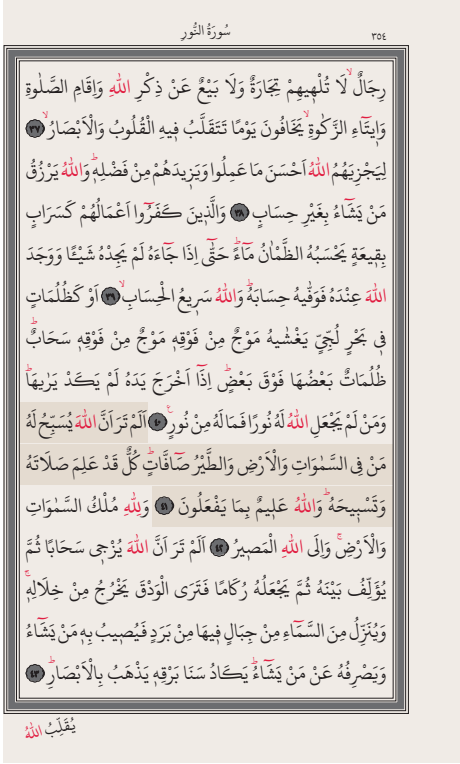 سُورَةُ النُّورِ
٣٥٤
رِجَالٌۙ لَا تُلْهٖيهِمْ تِجَارَةٌ وَلَا بَيْعٌ عَنْ ذِكْرِ اللّٰهِ وَاِقَامِ الصَّلٰوةِ
وَاٖيتَٓاءِ الزَّكٰوةِۙ يَخَافُونَ يَوْمًا تَتَقَلَّبُ فٖيهِ الْقُلُوبُ وَالْاَبْصَارُۙ ﴿٣٧﴾
لِيَجْزِيَهُمُ اللّٰهُ اَحْسَنَ مَا عَمِلُوا وَيَزٖيدَهُمْ مِنْ فَضْلِهٖؕ وَاللّٰهُ يَرْزُقُ
مَنْ يَشَٓاءُ بِغَيْرِ حِسَابٍ ﴿٣٨﴾ وَالَّذٖينَ كَفَرُٓوا اَعْمَالُهُمْ كَسَرَابٍ
بِقٖيعَةٍ يَحْسَبُهُ الظَّمْاٰنُ مَٓاءًؕ حَتّٰٓى اِذَا جَٓاءَهُ لَمْ يَجِدْهُ شَيْـًٔا وَوَجَدَ
اللّٰهَ عِنْدَهُ فَوَفّٰيهُ حِسَابَهُؕ وَاللّٰهُ سَرٖيعُ الْحِسَابِۙ ﴿٣٩﴾ اَوْ كَظُلُمَاتٍ
فٖي بَحْرٍ لُجِّيٍّ يَغْشٰيهُ مَوْجٌ مِنْ فَوْقِهٖ مَوْجٌ مِنْ فَوْقِهٖ سَحَابٌؕ
ظُلُمَاتٌ بَعْضُهَا فَوْقَ بَعْضٍؕ اِذَٓا اَخْرَجَ يَدَهُ لَمْ يَكَدْ يَرٰيهَاؕ
وَمَنْ لَمْ يَجْعَلِ اللّٰهُ لَهُ نُورًا فَمَا لَهُ مِنْ نُورٍ۟ ﴿٤٠﴾ اَلَمْ تَرَ اَنَّ اللّٰهَ يُسَبِّحُ لَهُ
مَنْ فِي السَّمٰوَاتِ وَالْاَرْضِ وَالطَّيْرُ صَٓافَّاتٍؕ كُلٌّ قَدْ عَلِمَ صَلَاتَهُ
وَتَسْبٖيحَهُؕ وَاللّٰهُ عَلٖيمٌ بِمَا يَفْعَلُونَ ﴿٤١﴾ وَلِلّٰهِ مُلْكُ السَّمٰوَاتِ
وَالْاَرْضِۚ وَاِلَى اللّٰهِ الْمَصٖيرُ ﴿٤٢﴾ اَلَمْ تَرَ اَنَّ اللّٰهَ يُزْجٖي سَحَابًا ثُمَّ
يُؤَلِّفُ بَيْنَهُ ثُمَّ يَجْعَلُهُ رُكَامًا فَتَرَى الْوَدْقَ يَخْرُجُ مِنْ خِلَالِهٖۚ
وَيُنَزِّلُ مِنَ السَّمَٓاءِ مِنْ جِبَالٍ فٖيهَا مِنْ بَرَدٍ فَيُصٖيبُ بِهٖ مَنْ يَشَٓاءُ
وَيَصْرِفُهُ عَنْ مَنْ يَشَٓاءُؕ يَكَادُ سَنَا بَرْقِهٖ يَذْهَبُ بِالْاَبْصَارِؕ ﴿٤٣﴾
يُقَلِّبُ اللّٰهُ